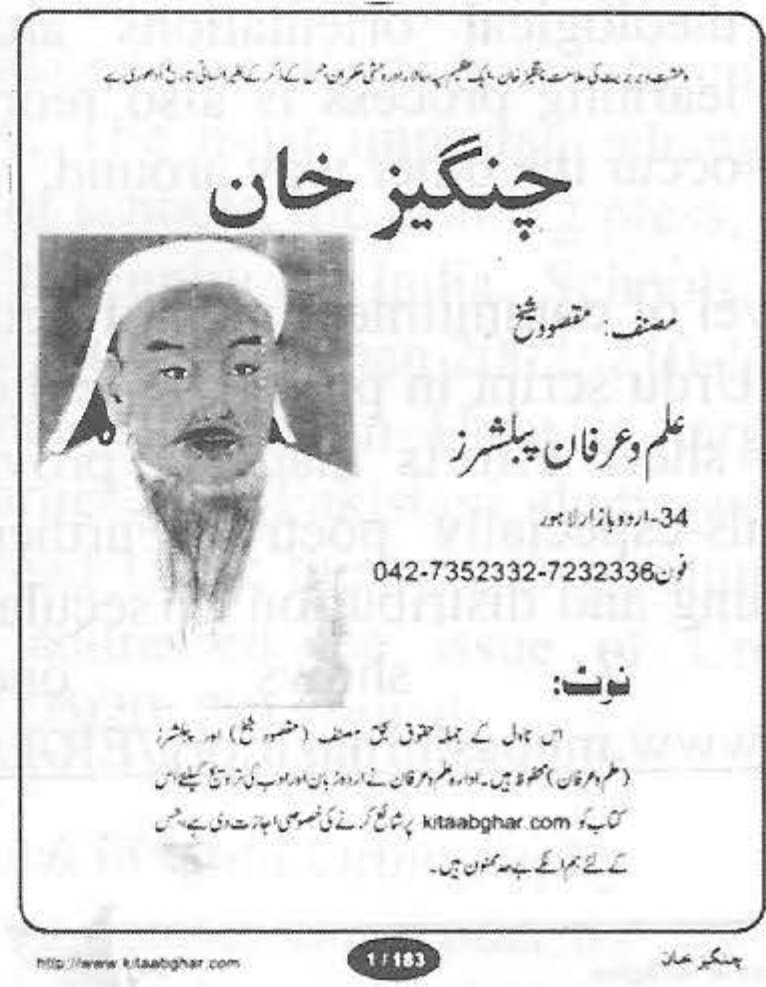 دہشت و بربریت کی علامت چنگیز خان، ایک عظیم سپہ سالار اور وحشی حکمران جس کے ذکر کے بغیر انسانی تاریخ ادھوری ہے
چنگیز خان
مصنف: مقصود شیخ
علم و عرفان پبلشرز
34-اردو بازار لاہور
فون 042-7352332-7232336
نوٹ:
اس ناول کے جملہ حقوق بحق مصنف (مقصود شیخ) اور پبلشرز
(علم و عرفان) محفوظ ہیں۔ ادارہ علم و عرفان نے اردو زبان اور ادب کی ترویج کیلئے اس
کتاب کو kitaabghar.com پر شائع کرنے کی خصوصی اجازت دی ہے، جس
کے لئے ہم انکے بے حد ممنون ہیں۔
http://www.kitaabghar.com
1 / 183
چنگیز خان